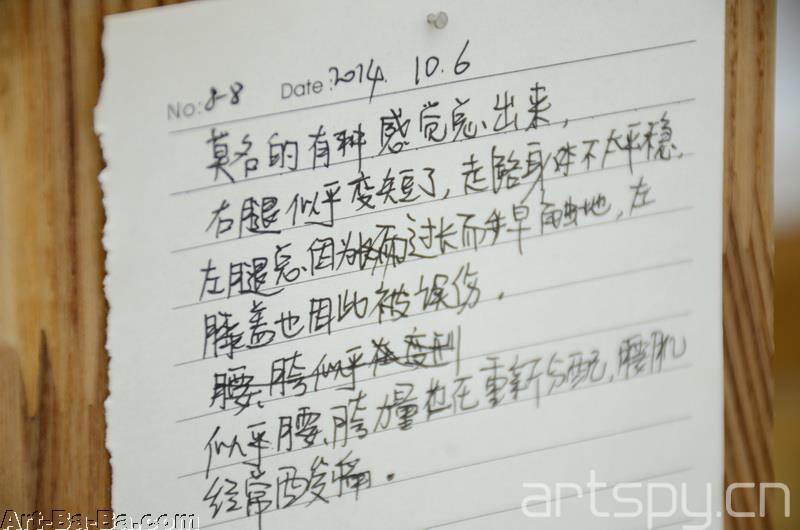 No: 8-8 Date: 2014. 10.6
莫名的有种感觉总出来,
右腿似乎变短了,走路身体不太平稳,
左腿总因为 过长而步早触地,左
膝盖也因此被误伤.
腰、胯似乎在变型
似乎腰、胯力量也在重新分配,腰肌
经常酸痛.
artspy.cn
Art-Ba-Ba.com